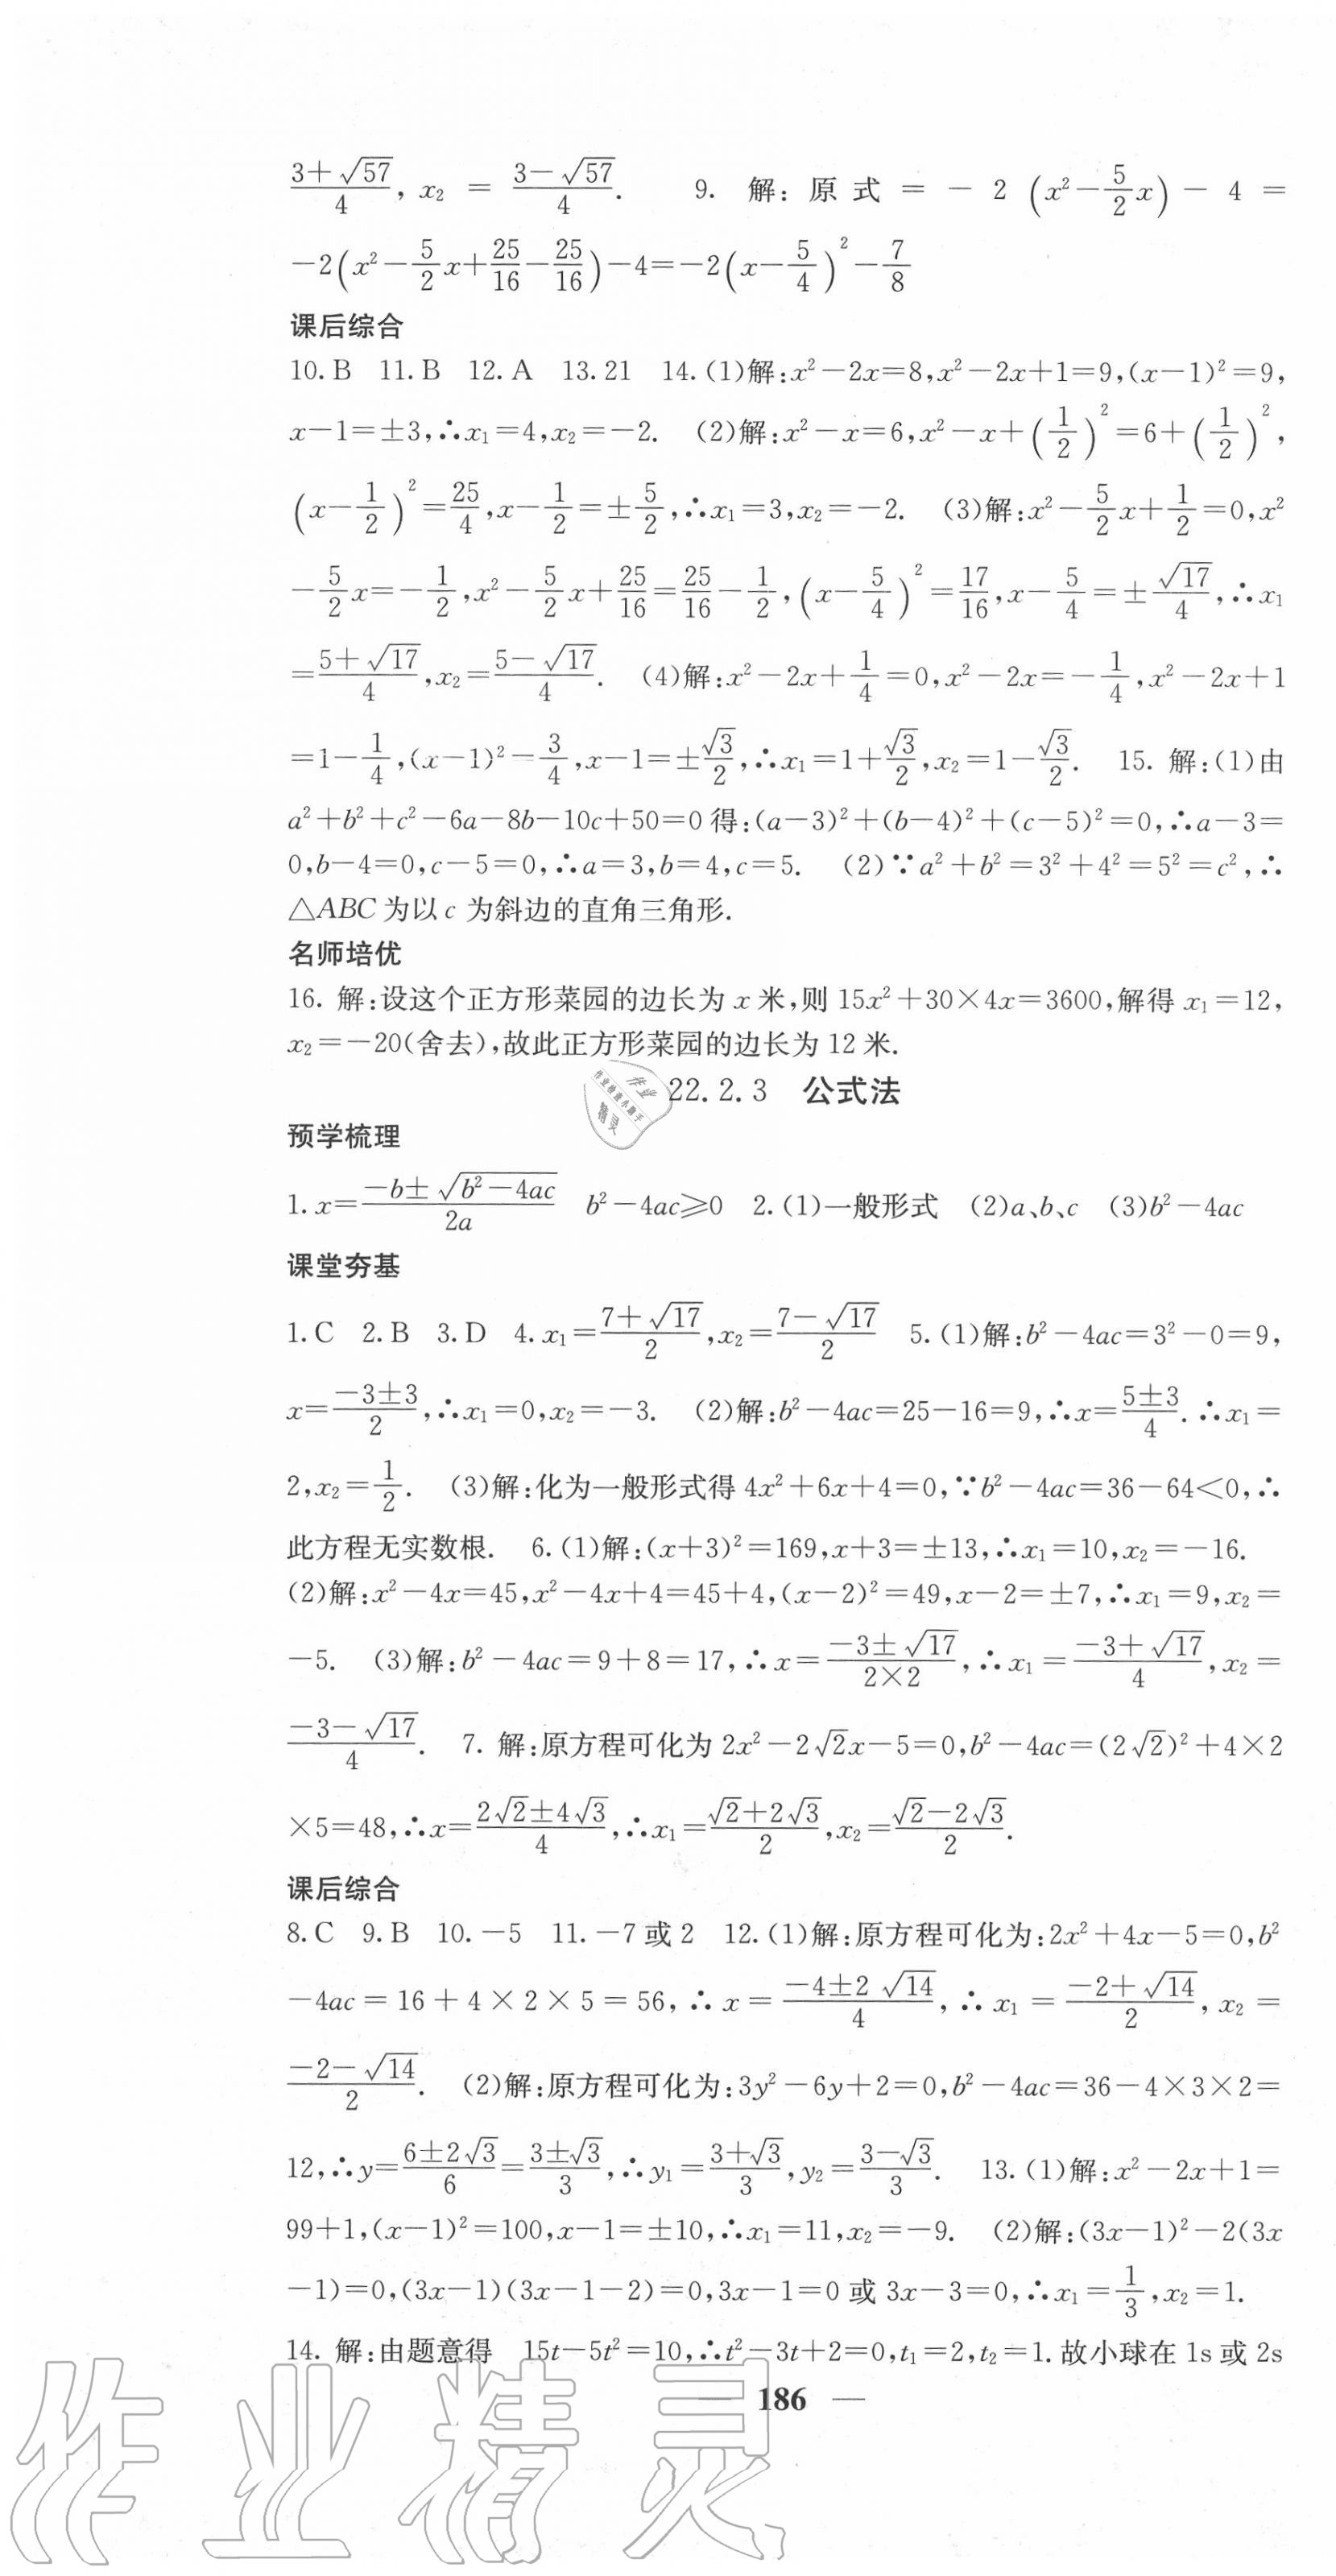 $\frac{3+\sqrt{57}}{4}$, $x_2=\frac{3-\sqrt{57}}{4}$. 9. 解:原式=-2$\left(x^2-\frac{5}{2}x\right)$-4=
$-2\left(x^2-\frac{5}{2}x+\frac{25}{16}-\frac{25}{16}\right)-4=-2\left(x-\frac{5}{4}\right)^2-\frac{7}{8}$
课后综合
10. B 11. B 12. A 13. 21 14. (1)解:$x^2-2x=8,x^2-2x+1=9,(x-1)^2=9,$
$x-1=±3,∴x_1=4,x_2=-2.$ (2)解:$x^2-x=6,x^2-x+\left(\frac{1}{2}\right)^2=6+\left(\frac{1}{2}\right)^2,$
$\left(x-\frac{1}{2}\right)^2=\frac{25}{4},x-\frac{1}{2}=±\frac{5}{2},∴x_1=3,x_2=-2.$ (3)解:$x^2-\frac{5}{2}x+\frac{1}{2}=0,x^2$
$-\frac{5}{2}x=-\frac{1}{2},x^2-\frac{5}{2}x+\frac{25}{16}=\frac{25}{16}-\frac{1}{2},\left(x-\frac{5}{4}\right)^2=\frac{17}{16},x-\frac{5}{4}=±\frac{\sqrt{17}}{4},∴x_1$
$=\frac{5+\sqrt{17}}{4},x_2=\frac{5-\sqrt{17}}{4}.$ (4)解:$x^2-2x+\frac{1}{4}=0,x^2-2x=-\frac{1}{4},x^2-2x+1$
$=1-\frac{1}{4},(x-1)^2=\frac{3}{4},x-1=±\frac{\sqrt{3}}{2},∴x_1=1+\frac{\sqrt{3}}{2},x_2=1-\frac{\sqrt{3}}{2}.$ 15. 解:(1)由
$a^2+b^2+c^2-6a-8b-10c+50=0$得:$(a-3)^2+(b-4)^2+(c-5)^2=0,∴a-3=$
$0,b-4=0,c-5=0,∴a=3,b=4,c=5.$ (2)$∵a^2+b^2=3^2+4^2=5^2=c^2,∴$
△ABC为以c为斜边的直角三角形.
名师培优
16. 解:设这个正方形菜园的边长为x米,则$15x^2+30×4x=3600$,解得$x_1=12,$
$x_2=-20$(舍去),故此正方形菜园的边长为12米.
作业 作业检查小助手 精灵
22.2.3 公式法
预学梳理
1. $x=\frac{-b±\sqrt{b^2-4ac}}{2a}$ $b^2-4ac≥0$ 2. (1)一般形式 (2)a、b、c (3)$b^2-4ac$
课堂夯基
1. C 2. B 3. D 4. $x_1=\frac{7+\sqrt{17}}{2},x_2=\frac{7-\sqrt{17}}{2}$ 5. (1)解:$b^2-4ac=3^2-0=9,$
$x=\frac{-3±3}{2},∴x_1=0,x_2=-3.$ (2)解:$b^2-4ac=25-16=9,∴x=\frac{5±3}{4}.∴x_1=$
$2,x_2=\frac{1}{2}.$ (3)解:化为一般形式得$4x^2+6x+4=0,∵b^2-4ac=36-64<0,∴$
此方程无实数根. 6. (1)解:$(x+3)^2=169,x+3=±13,∴x_1=10,x_2=-16.$
(2)解:$x^2-4x=45,x^2-4x+4=45+4,(x-2)^2=49,x-2=±7,∴x_1=9,x_2=$
$-5.$ (3)解:$b^2-4ac=9+8=17,∴x=\frac{-3±\sqrt{17}}{2×2},∴x_1=\frac{-3+\sqrt{17}}{4},x_2=$
$\frac{-3-\sqrt{17}}{4}.$ 7. 解:原方程可化为$2x^2-2\sqrt{2}x-5=0,b^2-4ac=(2\sqrt{2})^2+4×2$
$×5=48,∴x=\frac{2\sqrt{2}±4\sqrt{3}}{4},∴x_1=\frac{\sqrt{2}+2\sqrt{3}}{2},x_2=\frac{\sqrt{2}-2\sqrt{3}}{2}.$
课后综合
8. C 9. B 10. -5 11. -7或2 12. (1)解:原方程可化为:$2x^2+4x-5=0,b^2$
$-4ac=16+4×2×5=56,∴x=\frac{-4±2\sqrt{14}}{4},∴x_1=\frac{-2+\sqrt{14}}{2},x_2=$
$\frac{-2-\sqrt{14}}{2}.$ (2)解:原方程可化为:$3y^2-6y+2=0,b^2-4ac=36-4×3×2=$
$12,∴y=\frac{6±2\sqrt{3}}{6}=\frac{3±\sqrt{3}}{3},∴y_1=\frac{3+\sqrt{3}}{3},y_2=\frac{3-\sqrt{3}}{3}.$ 13. (1)解:$x^2-2x+1=$
$99+1,(x-1)^2=100,x-1=±10,∴x_1=11,x_2=-9.$ (2)解:$(3x-1)^2-2(3x$
$-1)=0,(3x-1)(3x-1-2)=0,3x-1=0$或$3x-3=0,∴x_1=\frac{1}{3},x_2=1.$
14. 解:由题意得 $15t-5t^2=10,∴t^2-3t+2=0,t_1=2,t_2=1.$故小球在1s或2s
186 —
作业精灵